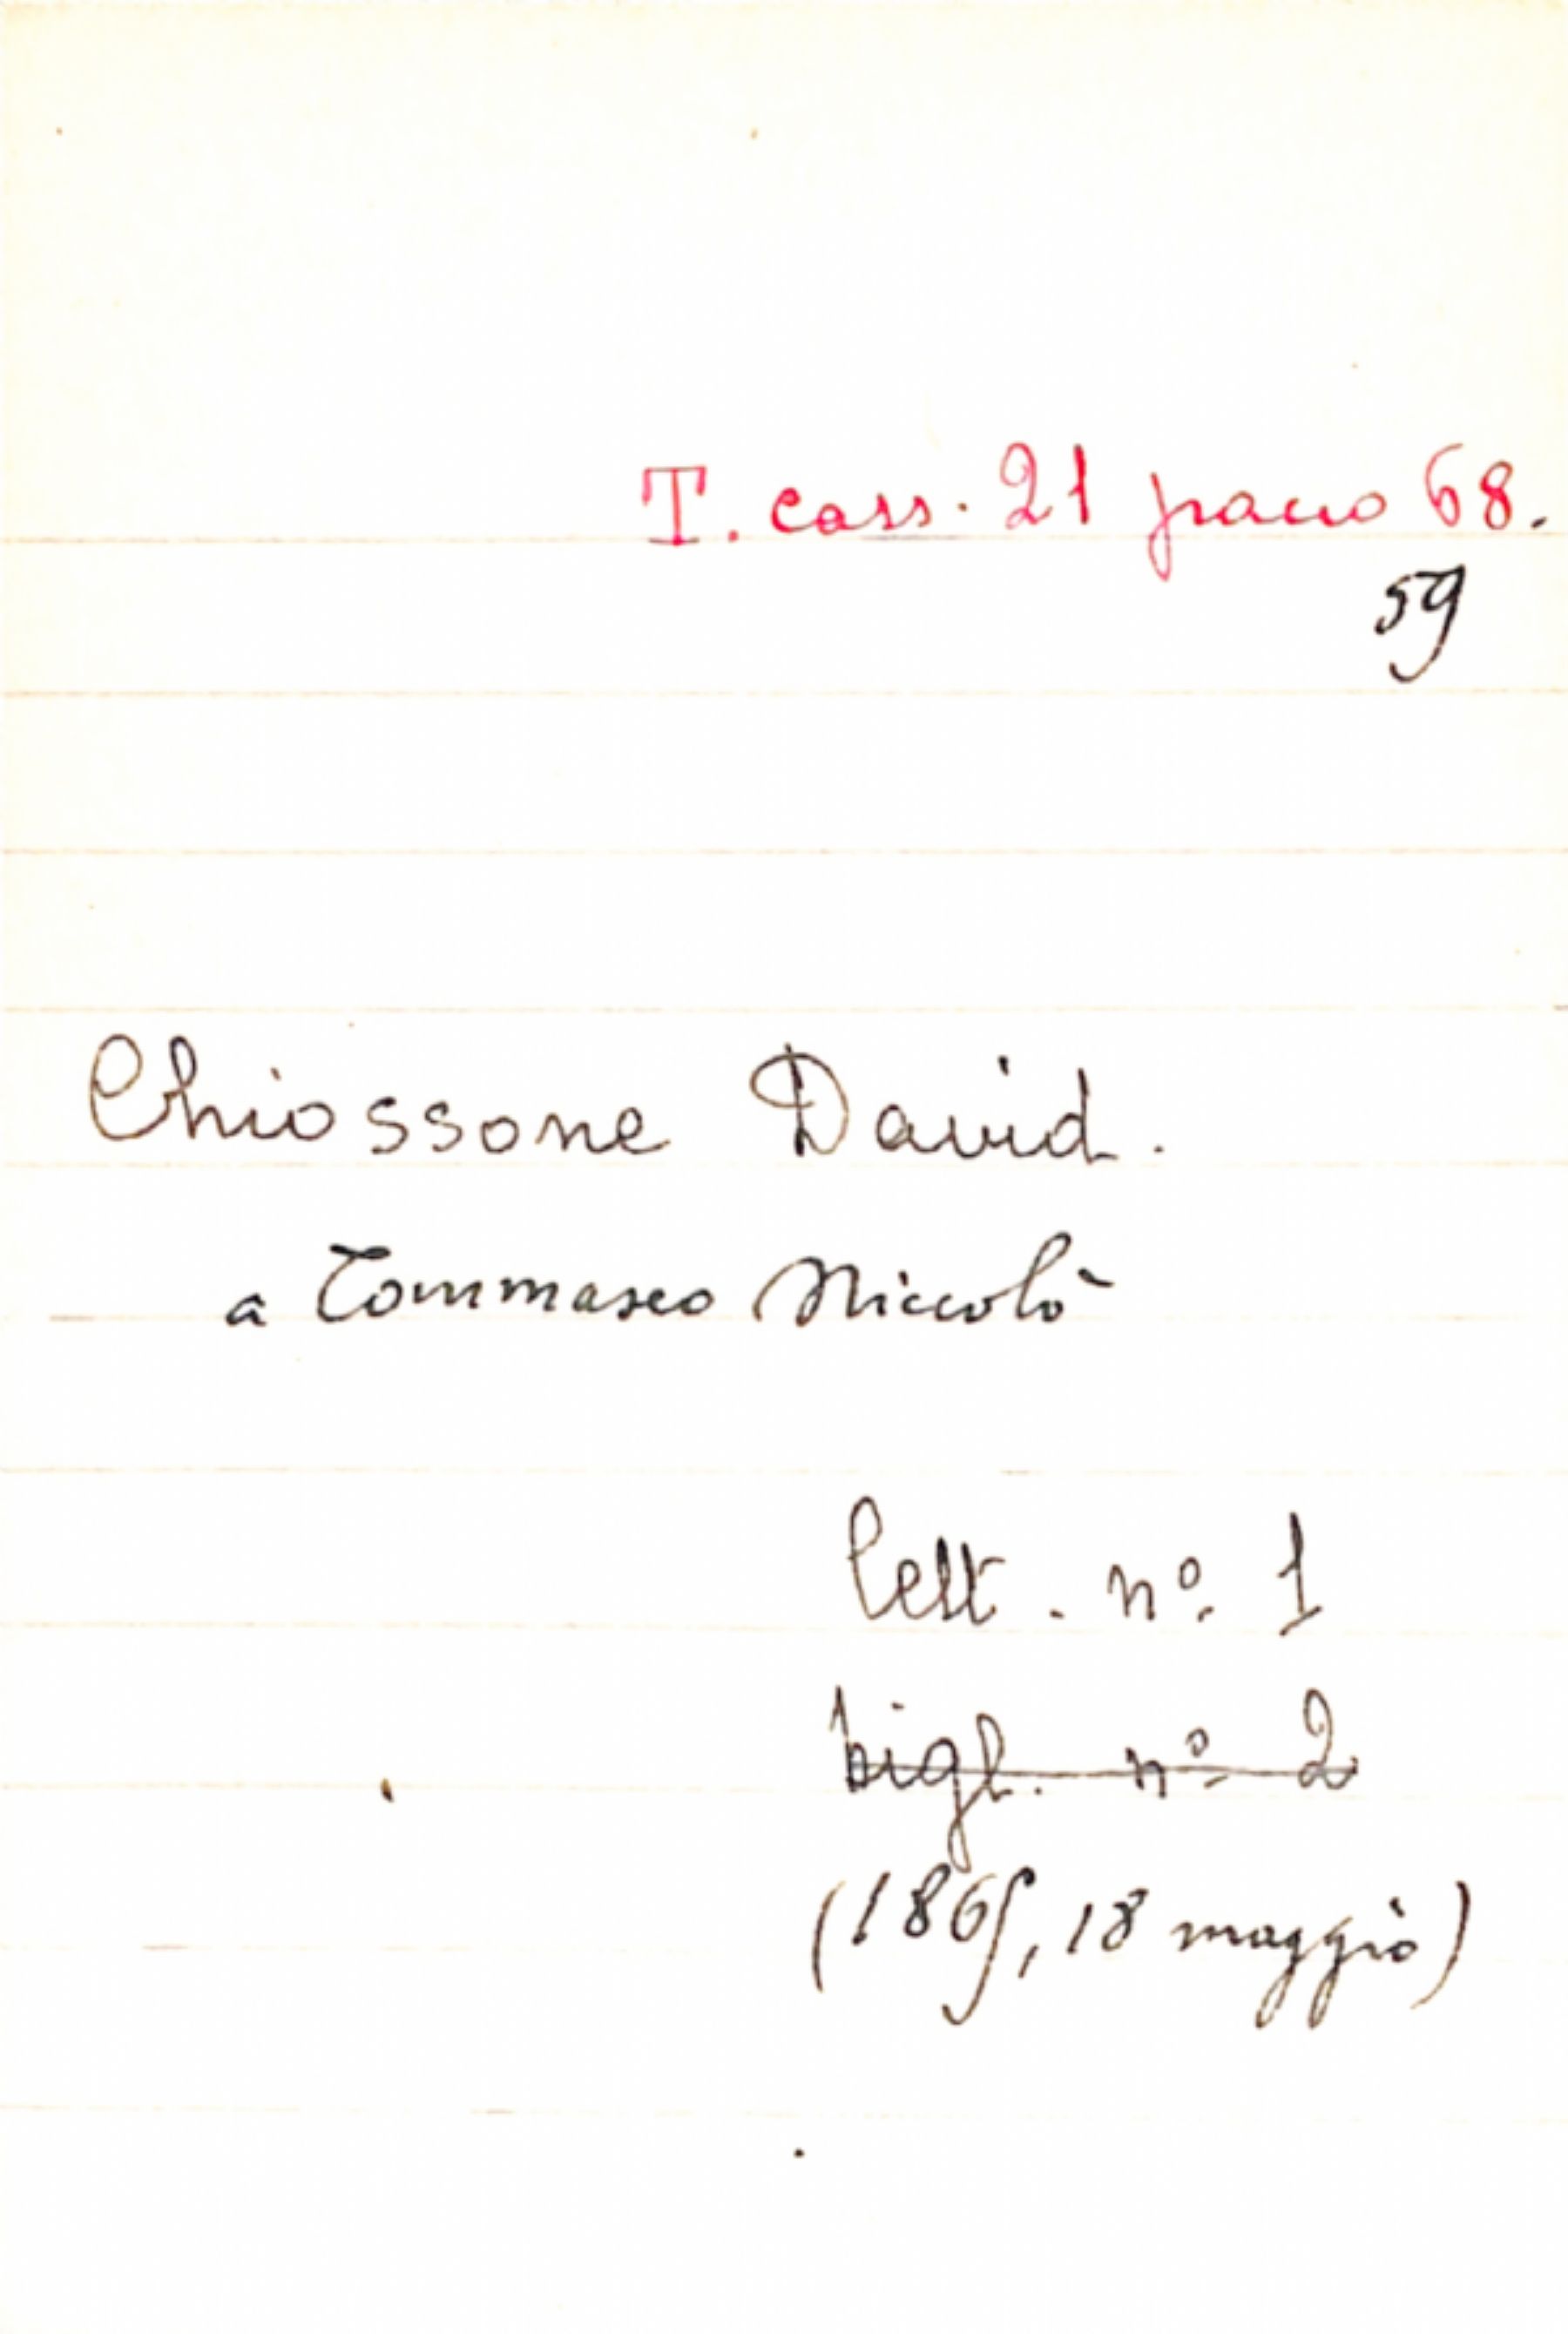 T. cass. 21 pacco 68.
59
Chiossone David.
a Tommaseo Niccolò
lett. nº 1
bigl. nº 2
(1865, 18 maggio)